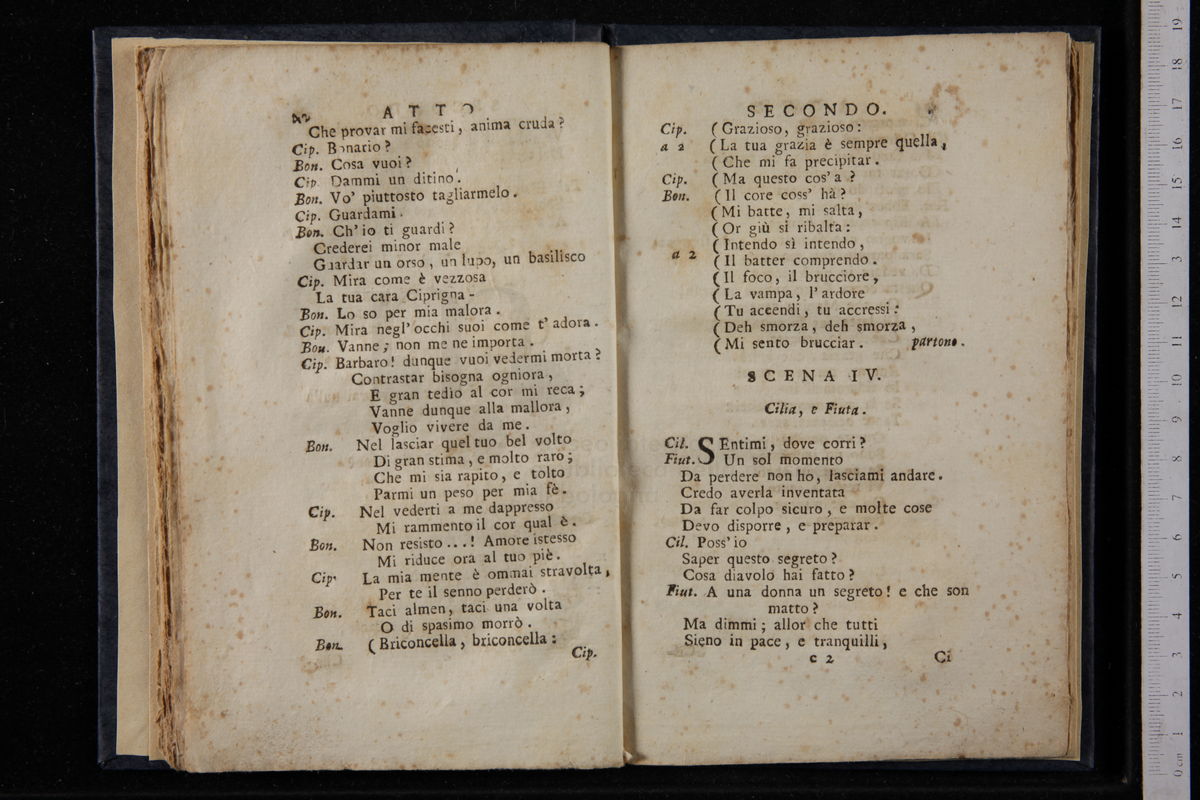 42 ATTO
Che provar mi facesti, anima cruda?
Cip. Bonario?
Bon. Cosa vuoi?
Cip. Dammi un ditino.
Bon. Vo' piuttosto tagliarmelo.
Cip. Guardami.
Bon. Ch'io ti guardi?
Crederei minor male
Guardar un orso, un lupo, un basilisco
Cip. Mira come è vezzosa
La tua cara Ciprigna -
Bon. Lo so per mia malora.
Cip. Mira negl' occhi suoi come t' adora.
Bon. Vanne; non me ne importa.
Cip. Barbaro! dunque vuoi vedermi morta?
Contrastar bisogna ogniora,
E gran tedio al cor mi reca;
Vanne dunque alla mallora,
Voglio vivere da me.
Bon. Nel lasciar quel tuo bel volto
Di gran stima, e molto raro;
Che mi sia rapito, e tolto
Parmi un peso per mia fè.
Cip. Nel vederti a me dappresso
Mi rammento il cor qual è.
Bon. Non resisto...! Amore istesso
Mi riduce ora al tuo piè.
Cip. La mia mente è ommai stravolta,
Per te il senno perderò.
Bon. Taci almen, taci una volta
O di spasimo morrò.
Bon. (Briconcella, briconcella:
Cip.
SECONDO.
Cip. (Grazioso, grazioso:
a 2 (La tua grazia è sempre quella,
(Che mi fa precipitar.
Cip. (Ma questo cos' a?
Bon. (Il core coss' hà?
(Mi batte, mi salta,
(Or giù si ribalta:
(Intendo sì intendo,
a 2 (Il batter comprendo.
(Il foco, il brucciore,
(La vampa, l' ardore
(Tu accendi, tu accressi:
(Deh smorza, deh smorza,
(Mi sento brucciar. partono.
SCENA IV.
Cilia, e Fiuta.
Cil. SEntimi, dove corri?
Fiut. Un sol momento
Da perdere non ho, lasciami andare.
Credo averla inventata
Da far colpo sicuro, e molte cose
Devo disporre, e preparar.
Cil. Poss' io
Saper questo segreto?
Cosa diavolo hai fatto?
Fiut. A una donna un segreto! e che son
matto?
Ma dimmi; allor che tutti
Sieno in pace, e tranquilli,
c 2 Ci